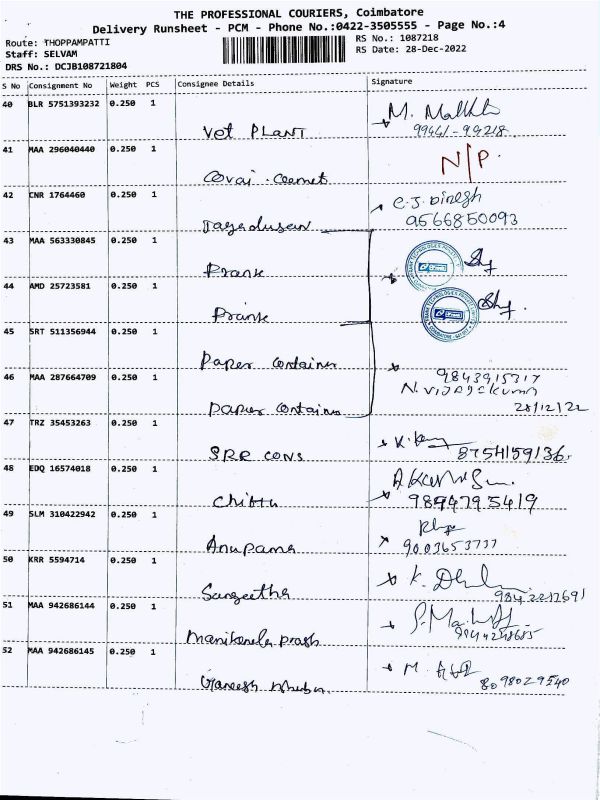 THE PROFESSIONAL COURIERS, Coimbatore
Delivery Runsheet - PCM - Phone No.:0422-3505555 - Page No.:4
Route: THOPPAMPATTI RS No.: 1087218
Staff: SELVAM RS Date: 28-Dec-2022
DRS No.: DCJB108721804
S No Consignment No Weight PCS Consignee Details Signature
40 BLR 5751393232 0.250 1
M. 
Vet PLANT 99441-94218
41 MAA 296040440 0.250 1
N/P
42 CNR 1764460 0.250 1
C.J. Dinesh
9566850093
43 MAA 563330845 0.250 1
Prank
44 AMD 25723581 0.250 1
Prank
45 SRT 511356944 0.250 1
Paper Container
46 MAA 287664709 0.250 1
9843915317
N. Vijayakumar
Paper Container 28/12/22
47 TRZ 35453263 0.250 1
SRR CONS 8754159136
48 EDQ 16574018 0.250 1
9894795419
49 SLM 310422942 0.250 1
Anupama 9003653737
50 KRR 5594714 0.250 1
K.
Sangeetha
51 MAA 942686144 0.250 1
52 MAA 942686145 0.250 1
M.
Ganesh 8098029540